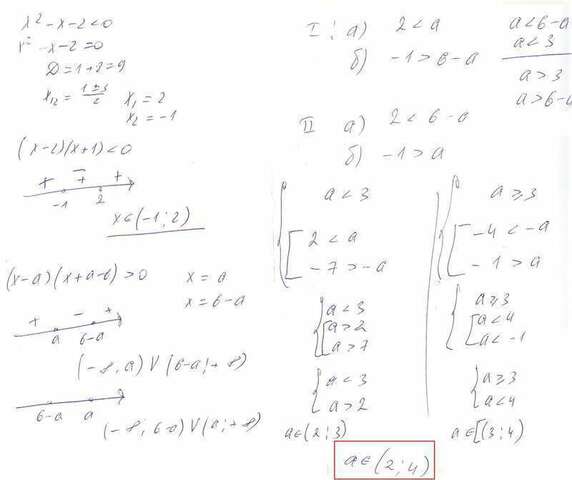 x² - x - 2 < 0
x² - x - 2 = 0
D = 1 + 8 = 9
x₁₂ = (1 ± 3)/2 x₁ = 2
x₂ = -1
(x-2)(x+1) < 0
+ - +
-1 2
x ∈ (-1; 2)
(x-a)(x+a-6) > 0 x = a
x = 6-a
+ - +
a 6-a
(-8, a) V (6-a; +8)
6-a a
(-8, 6-a) V (a; +8)
I: a) 2 < a
б) -1 > 6-a
a < 6-a
a < 3
a > 3
a > 6-a
II a) 2 < 6-a
б) -1 > a
a < 3
2 < a
-7 > -a
a < 3
a > 2
a > 7
a < 3
a > 2
a ∈ (2; 3)
a ≥ 3
-4 < -a
-1 > a
a ≥ 3
a < 4
a < -1
a ≥ 3
a < 4
a ∈ [(3; 4)
a ∈ (2; 4)